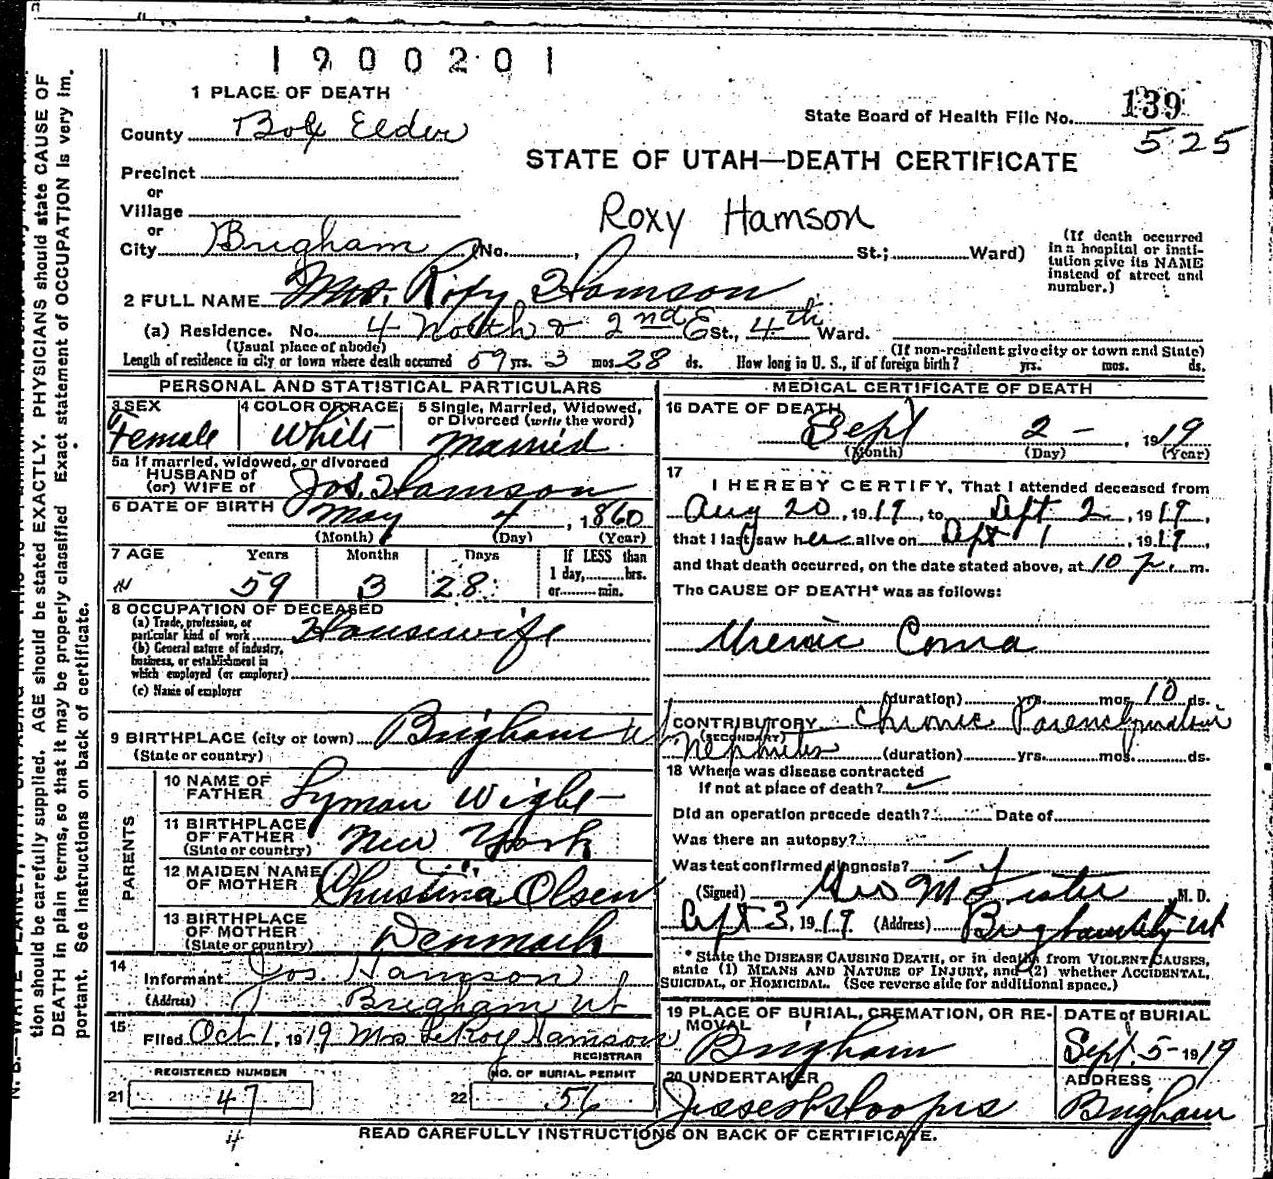 1900201
1 PLACE OF DEATH
State Board of Health File No. 139
County Box Elder
525
STATE OF UTAH—DEATH CERTIFICATE
Precinct
or
Village
Roxy Hamson
or
City Brigham (No. , St.; Ward)
(If death occurred in a hospital or institution give its NAME instead of street and number.)
2 FULL NAME Mrs. Roxy Hamson
(a) Residence. No. 4 North & 2nd E St., 4th Ward.
(Usual place of abode) (If non-resident give city or town and State)
Length of residence in city or town where death occurred 59 yrs. 3 mos. 28 ds. How long in U. S., if of foreign birth? yrs. mos. ds.
PERSONAL AND STATISTICAL PARTICULARS
3 SEX Female
4 COLOR OR RACE White
5 Single, Married, Widowed, or Divorced (write the word) Married
5a If married, widowed, or divorced
HUSBAND of
(or) WIFE of Jos. Hamson
6 DATE OF BIRTH May 4, 1860
(Month) (Day) (Year)
7 AGE Years Months Days If LESS than
59 3 28 1 day, hrs.
or min.
8 OCCUPATION OF DECEASED
(a) Trade, profession, or
particular kind of work Housewife
(b) General nature of industry,
business, or establishment in
which employed (or employer)
(c) Name of employer
9 BIRTHPLACE (city or town) Brigham U
(State or country)
PARENTS
10 NAME OF FATHER Lyman Wight
11 BIRTHPLACE OF FATHER New York
(State or country)
12 MAIDEN NAME OF MOTHER Christina Olsen
13 BIRTHPLACE OF MOTHER Denmark
(State or country)
14 Informant Jos. Hamson
(Address) Brigham Ut
15 Filed Oct 1, 1919 Mrs LeRoy Hamson
REGISTRAR
REGISTERED NUMBER NO. OF BURIAL PERMIT
21 47 22 56
4
MEDICAL CERTIFICATE OF DEATH
16 DATE OF DEATH
Sept 2 - , 1919
(Month) (Day) (Year)
17
I HEREBY CERTIFY, That I attended deceased from
Aug 20, 1919, to Sept 2, 1919,
that I last saw her alive on Sept 1, 1919,
and that death occurred, on the date stated above, at 10 p. m.
The CAUSE OF DEATH* was as follows:
Uremic Coma
(duration) yrs. mos. 10 ds.
CONTRIBUTORY Chronic Parenchymatous
(SECONDARY)
Nephritis (duration) yrs. mos. ds.
18 Where was disease contracted
If not at place of death?
Did an operation precede death? Date of
Was there an autopsy?
Was test confirmed diagnosis?
(Signed) Geo M Fister M. D.
Sept 3, 1919 (Address) Brigham City Ut
* State the DISEASE CAUSING DEATH, or in deaths from VIOLENT CAUSES,
state (1) MEANS AND NATURE OF INJURY, and (2) whether ACCIDENTAL,
SUICIDAL, or HOMICIDAL. (See reverse side for additional space.)
19 PLACE OF BURIAL, CREMATION, OR REMOVAL
Brigham
DATE of BURIAL
Sept. 5- 1919
20 UNDERTAKER
ADDRESS
Brigham
READ CAREFULLY INSTRUCTIONS ON BACK OF CERTIFICATE.
tion should be carefully supplied. AGE should be stated EXACTLY. PHYSICIANS should state CAUSE OF
DEATH in plain terms, so that it may be properly classified Exact statement of OCCUPATION is very im.
portant. See Instructions on back of certificate.